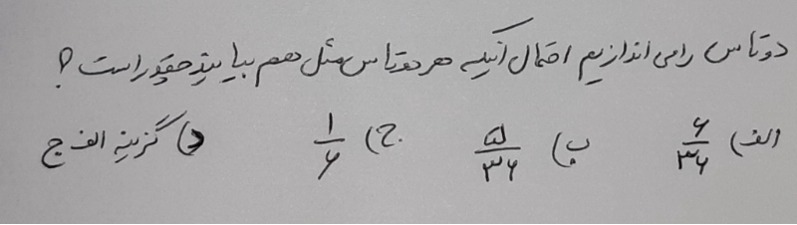 دو تاس را می اندازیم احتمال آنکه هر دو تاس مثل هم بیایند چقدر است ؟
الف) ۶/۳۶ ب) ۵/۳۶ ج) ۱/۶ د) گزینه الف ج